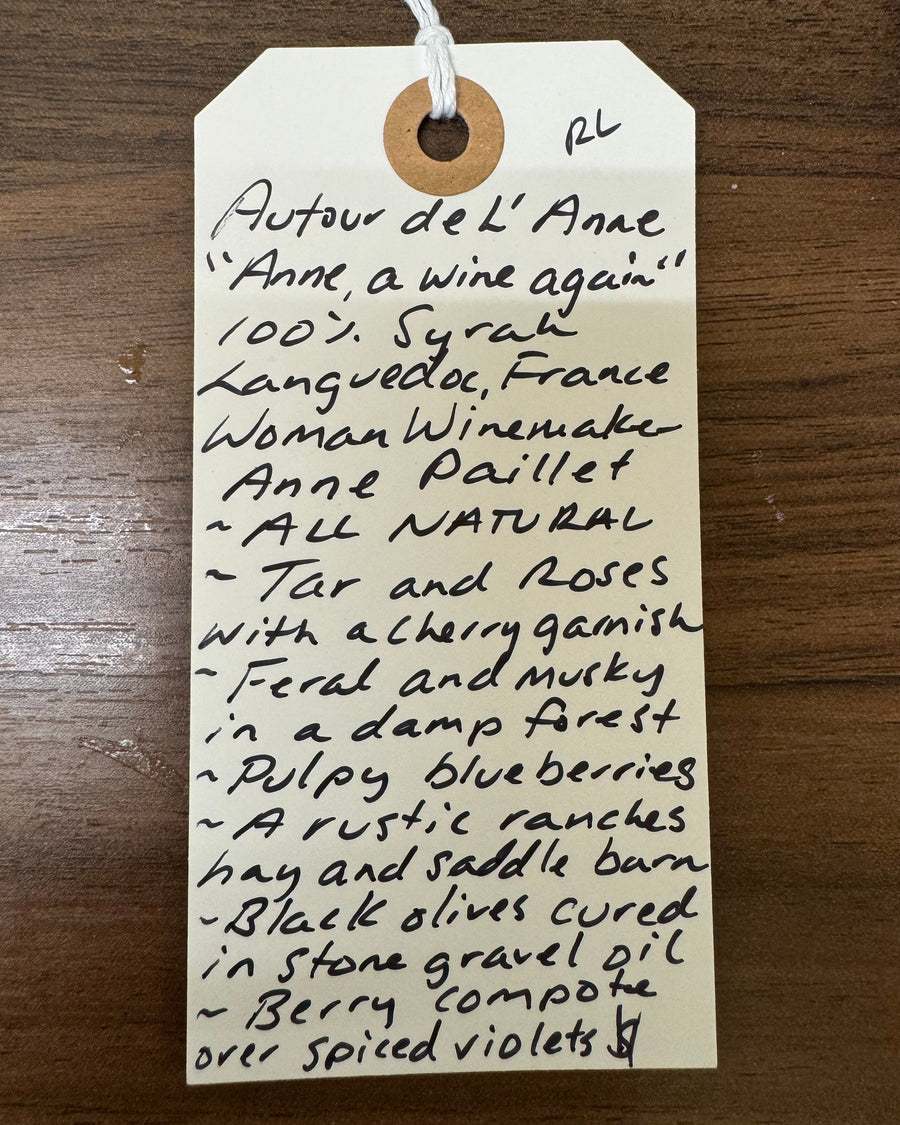 RL
Autour de L'Anne
"Anne, a wine again"
100% Syrah
Languedoc, France
Woman Winemaker
Anne Paillet
~ ALL NATURAL
~ Tar and Roses
with a cherry garnish
~ Feral and musky
in a damp forest
~ Pulpy blueberries
~ A rustic ranches
hay and saddle barn
~ Black olives cured
in stone gravel oil
~ Berry compote
over spiced violets